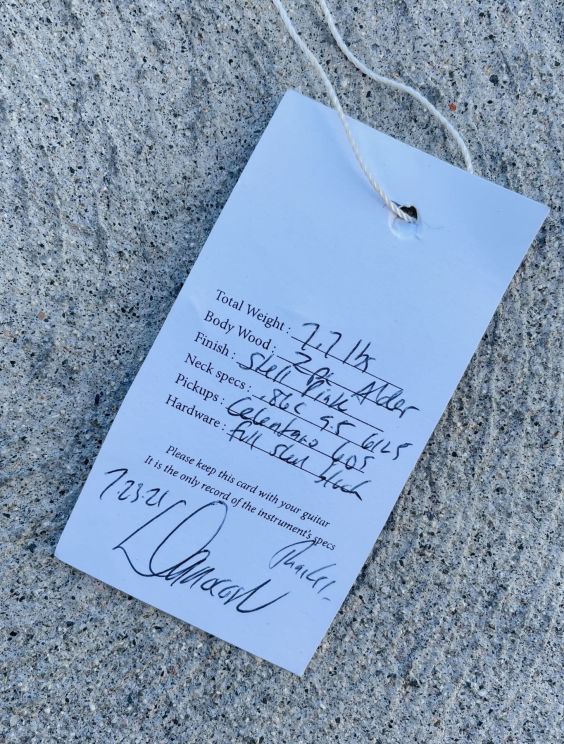 Total Weight : 7.7 lbs
Body Wood : 2pc Alder
Finish : Shell Pink
Neck specs : .86 C 9.5 6125
Pickups : Celentano 60s
Hardware : full steel block
Please keep this card with your guitar
It is the only record of the instrument's specs
Thanks! -